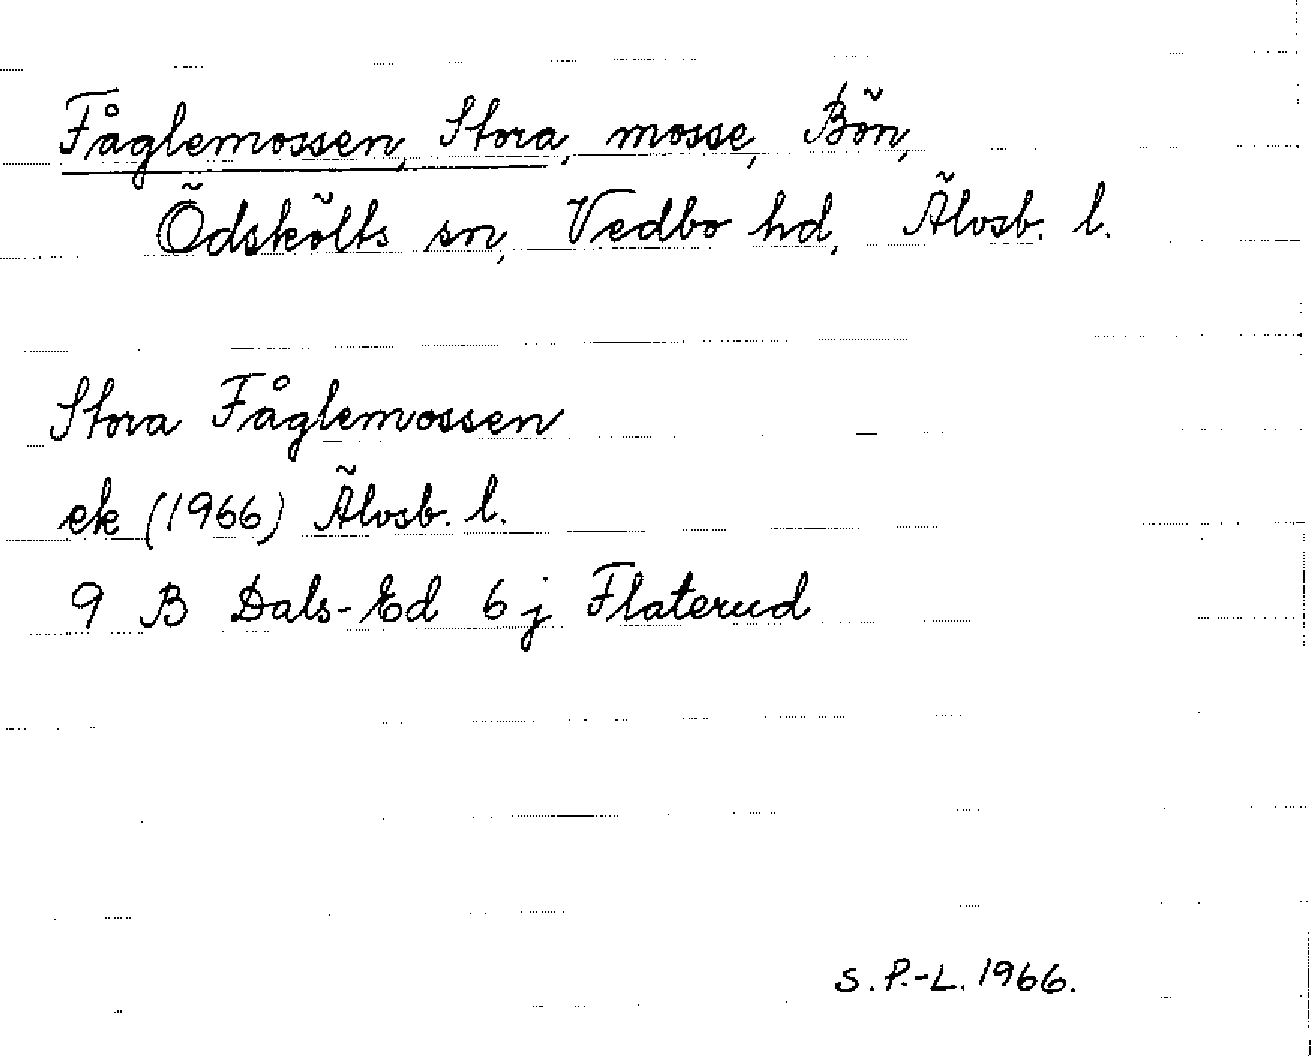 Fåglemossen, Stora, mosse, Bön,
Ödskölts sn, Vedbo hd, Älvsb. l.
Stora Fåglemossen
ek (1966) Älvsb. l.
9 B Dals-Ed 6 j Flaterud
S. P.-L. 1966.